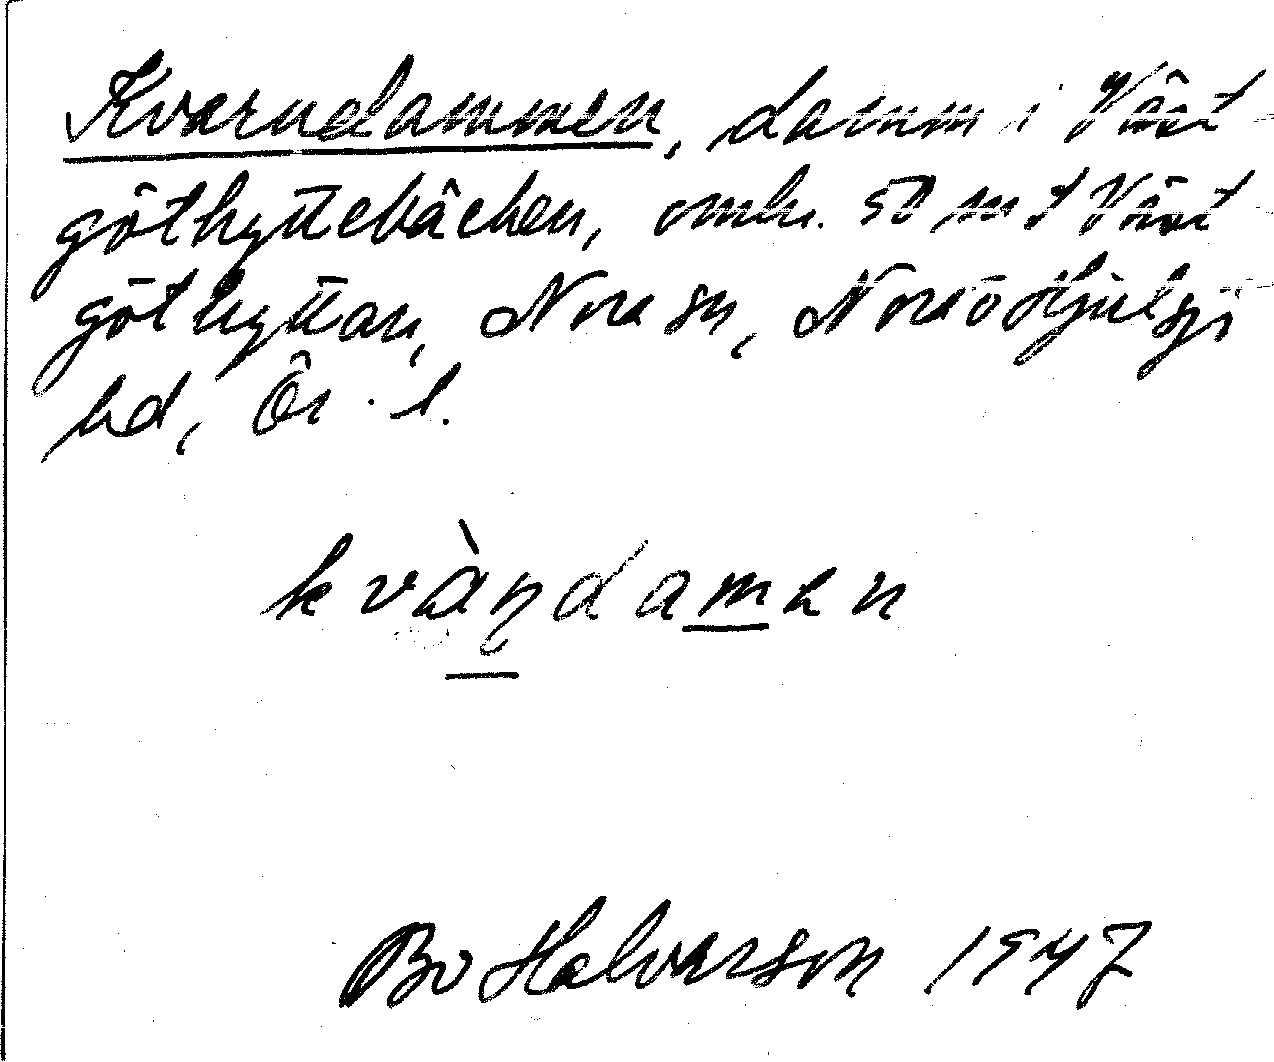 Kvarndammen, damm i Väst-
göthyttebäcken, omkr. 50 m t Väst-
göthyttan, Nora sn, Nora o Hjulsjö
bd, Ör. l.
kvàṇdamen
Bo Halvarson 1947